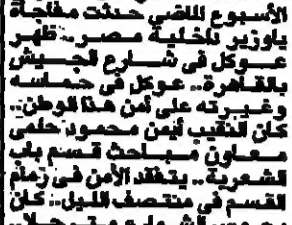 الأسبوع الماضي حدثت مفاجأة
ياوزير داخلية مصر .. ظهر
عوكل فى شارع الجيش
بالقاهرة .. عوكل فى حماسه
وغيرته على أمن هذا الوطن ..
كان النقيب أيمن محمود حلمى
معاون مباحث قسم باب
الشعرية .. يتفقد الأمن فى زمام
القسم فى منتصف الليل .. كان